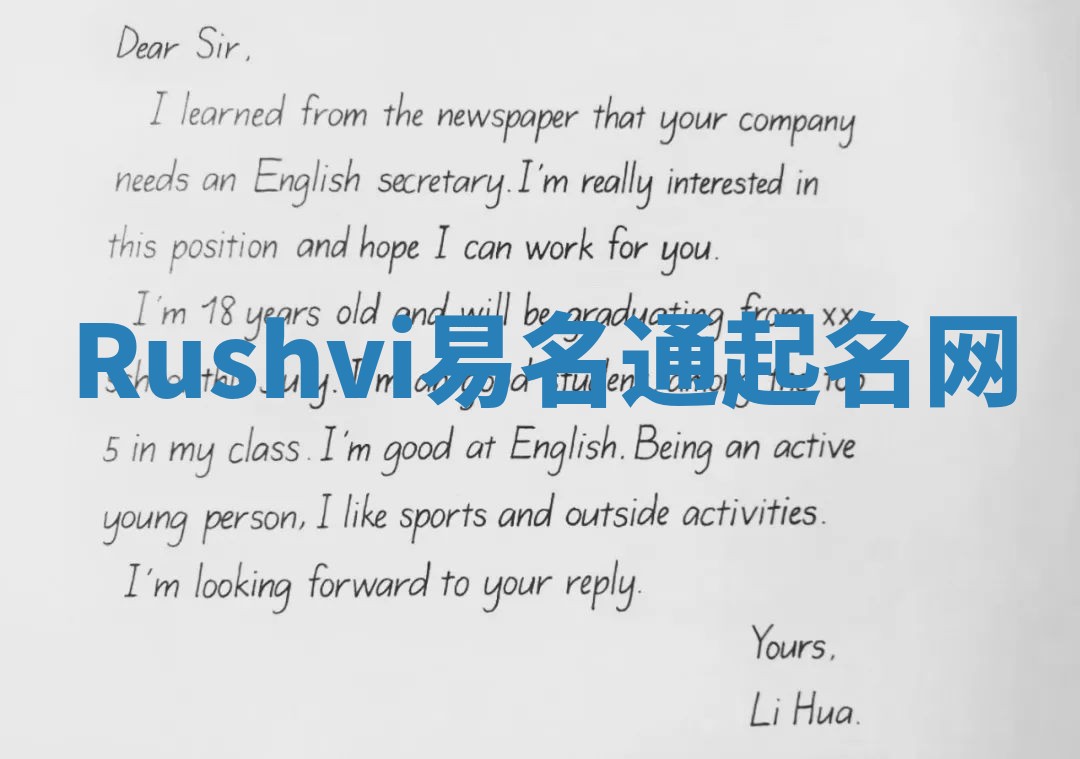 Dear Sir,
I learned from the newspaper that your company
needs an English secretary. I'm really interested in
this position and hope I can work for you.
I'm 18 years old and will be graduating from xx
Rushvi易名通起名网
July. I'm a good student among the top
5 in my class. I'm good at English. Being an active
young person, I like sports and outside activities.
I'm looking forward to your reply.
Yours,
Li Hua.